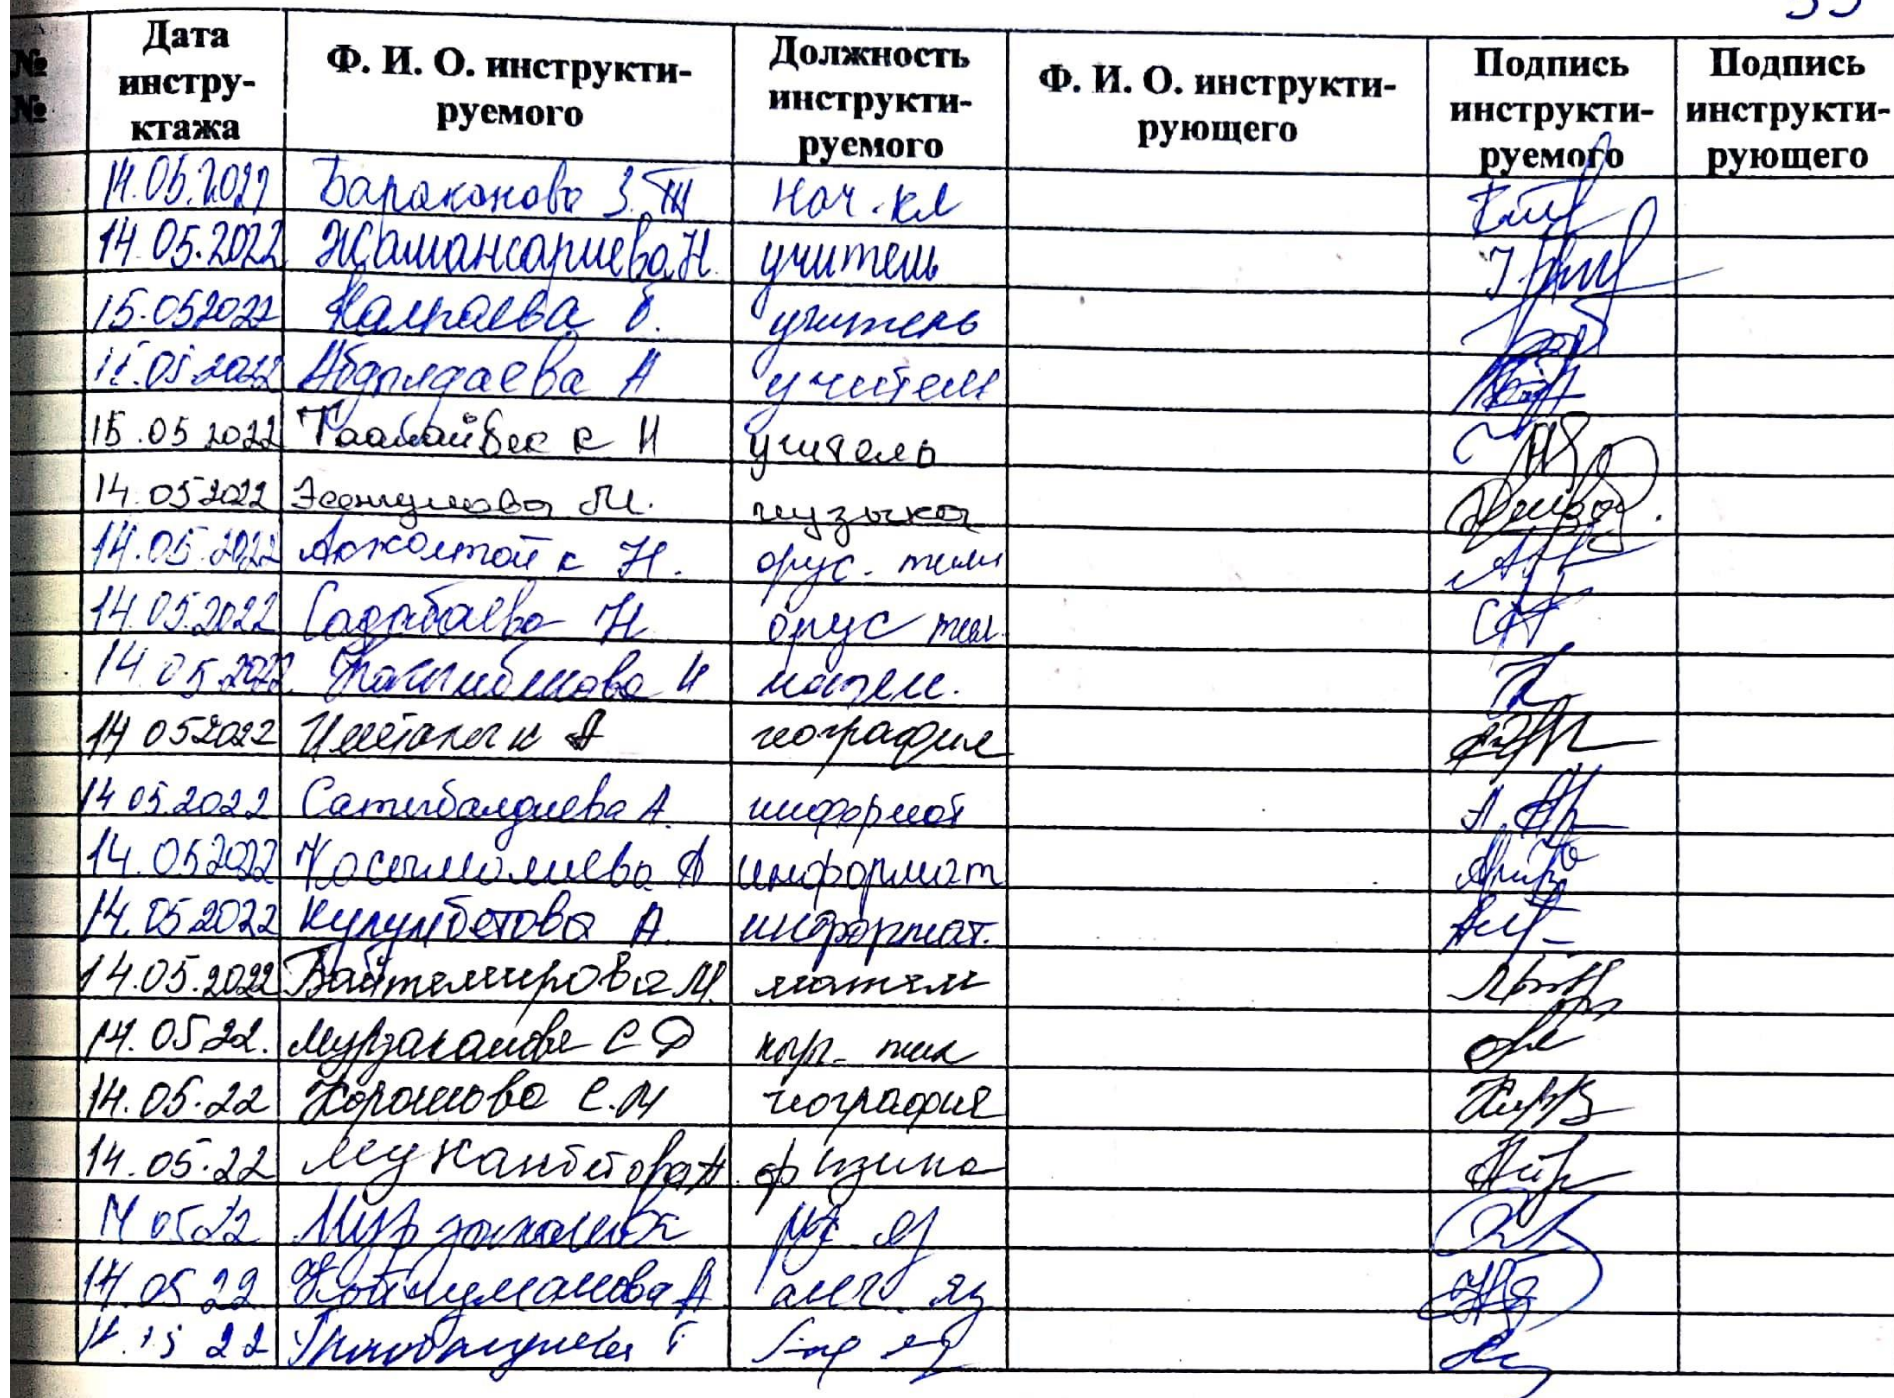 № №
Дата инстру-ктажа
Ф. И. О. инструкти-руемого
Должность инструкти-руемого
Ф. И. О. инструкти-рующего
Подпись инструкти-руемого
Подпись инструкти-рующего
14.05.2022 Бараканова З. Нач. кл
14.05.2022 Жамансариева Н. учитель
15.052022 Калпаева б. учитель
05 2022 Абдылдаева А учитель
15.05 2022 Таалайбек к Н учитель
14.052022 М. музыка
14.05.2022 Акжолтой к Н. орус. тили
14.05.2022 Садабаева Н орус тил.
14.05.2022 Н матем.
14 052022 к А география
14 05.2022 Сатыбалдиева А. информат
14.052022 Касымалиева А информат
14.05 2022 Кулумбетова А. информат.
14.05.2022 Байтемирова М. матем
14.05.22. Мурзаканова С кыр. тил
14.05.22 С.М география
14.05.22 Муканбетова А физика
14 05 22
14 05 22 Койчуманова А англ. яз
22